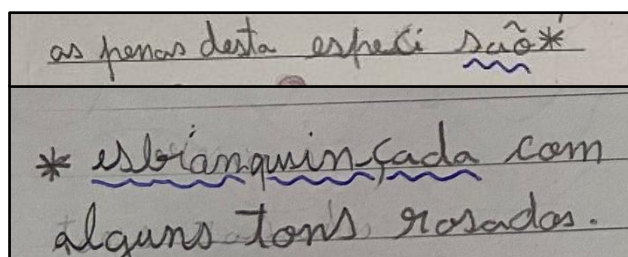 as penas desta especi são*
* esbianquin-çada com
alguns tons rosados.